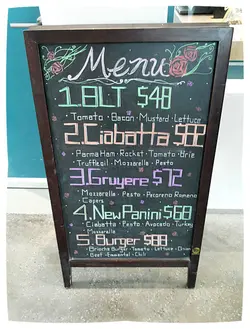 Menu
1.BLT $48
Tomato · Bacon · Mustard · Lettuce
2.Ciabatta $88
Parma Ham · Rocket · Tomato · Brie
Truffle oil · Mozzarella · Pesto
3.Gruyere $72
Mozzarella · Pesto · Pecoreno Romano
· Capers
4.New Panini $68
Ciabatta · Pesto · Avocado · Turkey
· Mozzarella
5.Burger $88
· Brioche Burger · Tomato · Lettuce · Onion
· Beef · Emmental · Chili